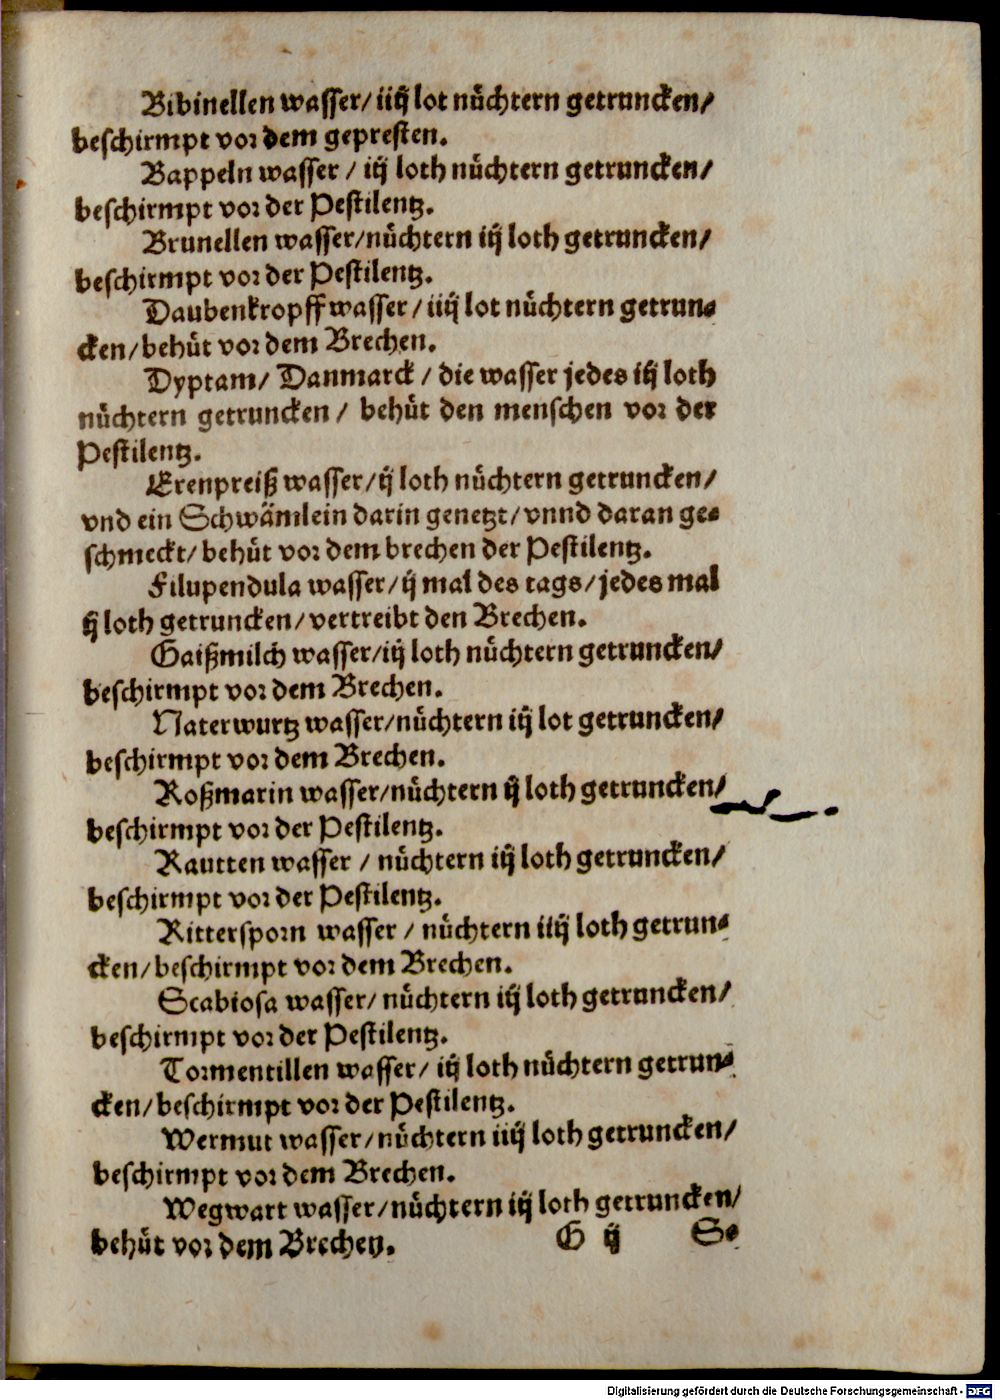 Bibinellen wasser/ iiij lot nüchtern getruncken/
beschirmpt vor dem gepresten.
Bappeln wasser / iij loth nüchtern getruncken/
beschirmpt vor der Pestilentz.
Brunellen wasser/nüchtern iij loth getruncken/
beschirmpt vor der Pestilentz.
Daubenkropff wasser / iiij lot nüchtern getrun-
cken/behüt vor dem Brechen.
Dyptam/ Danmarck / die wasser jedes iij loth
nüchtern getruncken / behüt den menschen vor der
Pestilentz.
Erenpreiß wasser/ij loth nüchtern getruncken/
vnd ein Schwämlein darin genetzt/vnnd daran ge-
schmeckt/behüt vor dem brechen der Pestilentz.
Filupendula wasser/ij mal des tags/jedes mal
ij loth getruncken/vertreibt den Brechen.
Gaißmilch wasser/iij loth nüchtern getruncken/
beschirmpt vor dem Brechen.
Naterwurtz wasser/nüchtern iij lot getruncken/
beschirmpt vor dem Brechen.
Roßmarin wasser/nüchtern ij loth getruncken/
beschirmpt vor der Pestilentz.
Rautten wasser / nüchtern iij loth getruncken/
beschirmpt vor der Pestilentz.
Rittersporn wasser / nüchtern iiij loth getrun-
cken/beschirmpt vor dem Brechen.
Scabiosa wasser/ nüchtern iij loth getruncken/
beschirmpt vor der Pestilentz.
Tormentillen wasser/ iij loth nüchtern getrun-
cken/beschirmpt vor der Pestilentz.
Wermut wasser/nüchtern iiij loth getruncken/
beschirmpt vor dem Brechen.
Wegwart wasser/nüchtern iij loth getruncken/
behüt vor dem Brechen. G ij Se
Digitalisierung gefördert durch die Deutsche Forschungsgemeinschaft - DFG